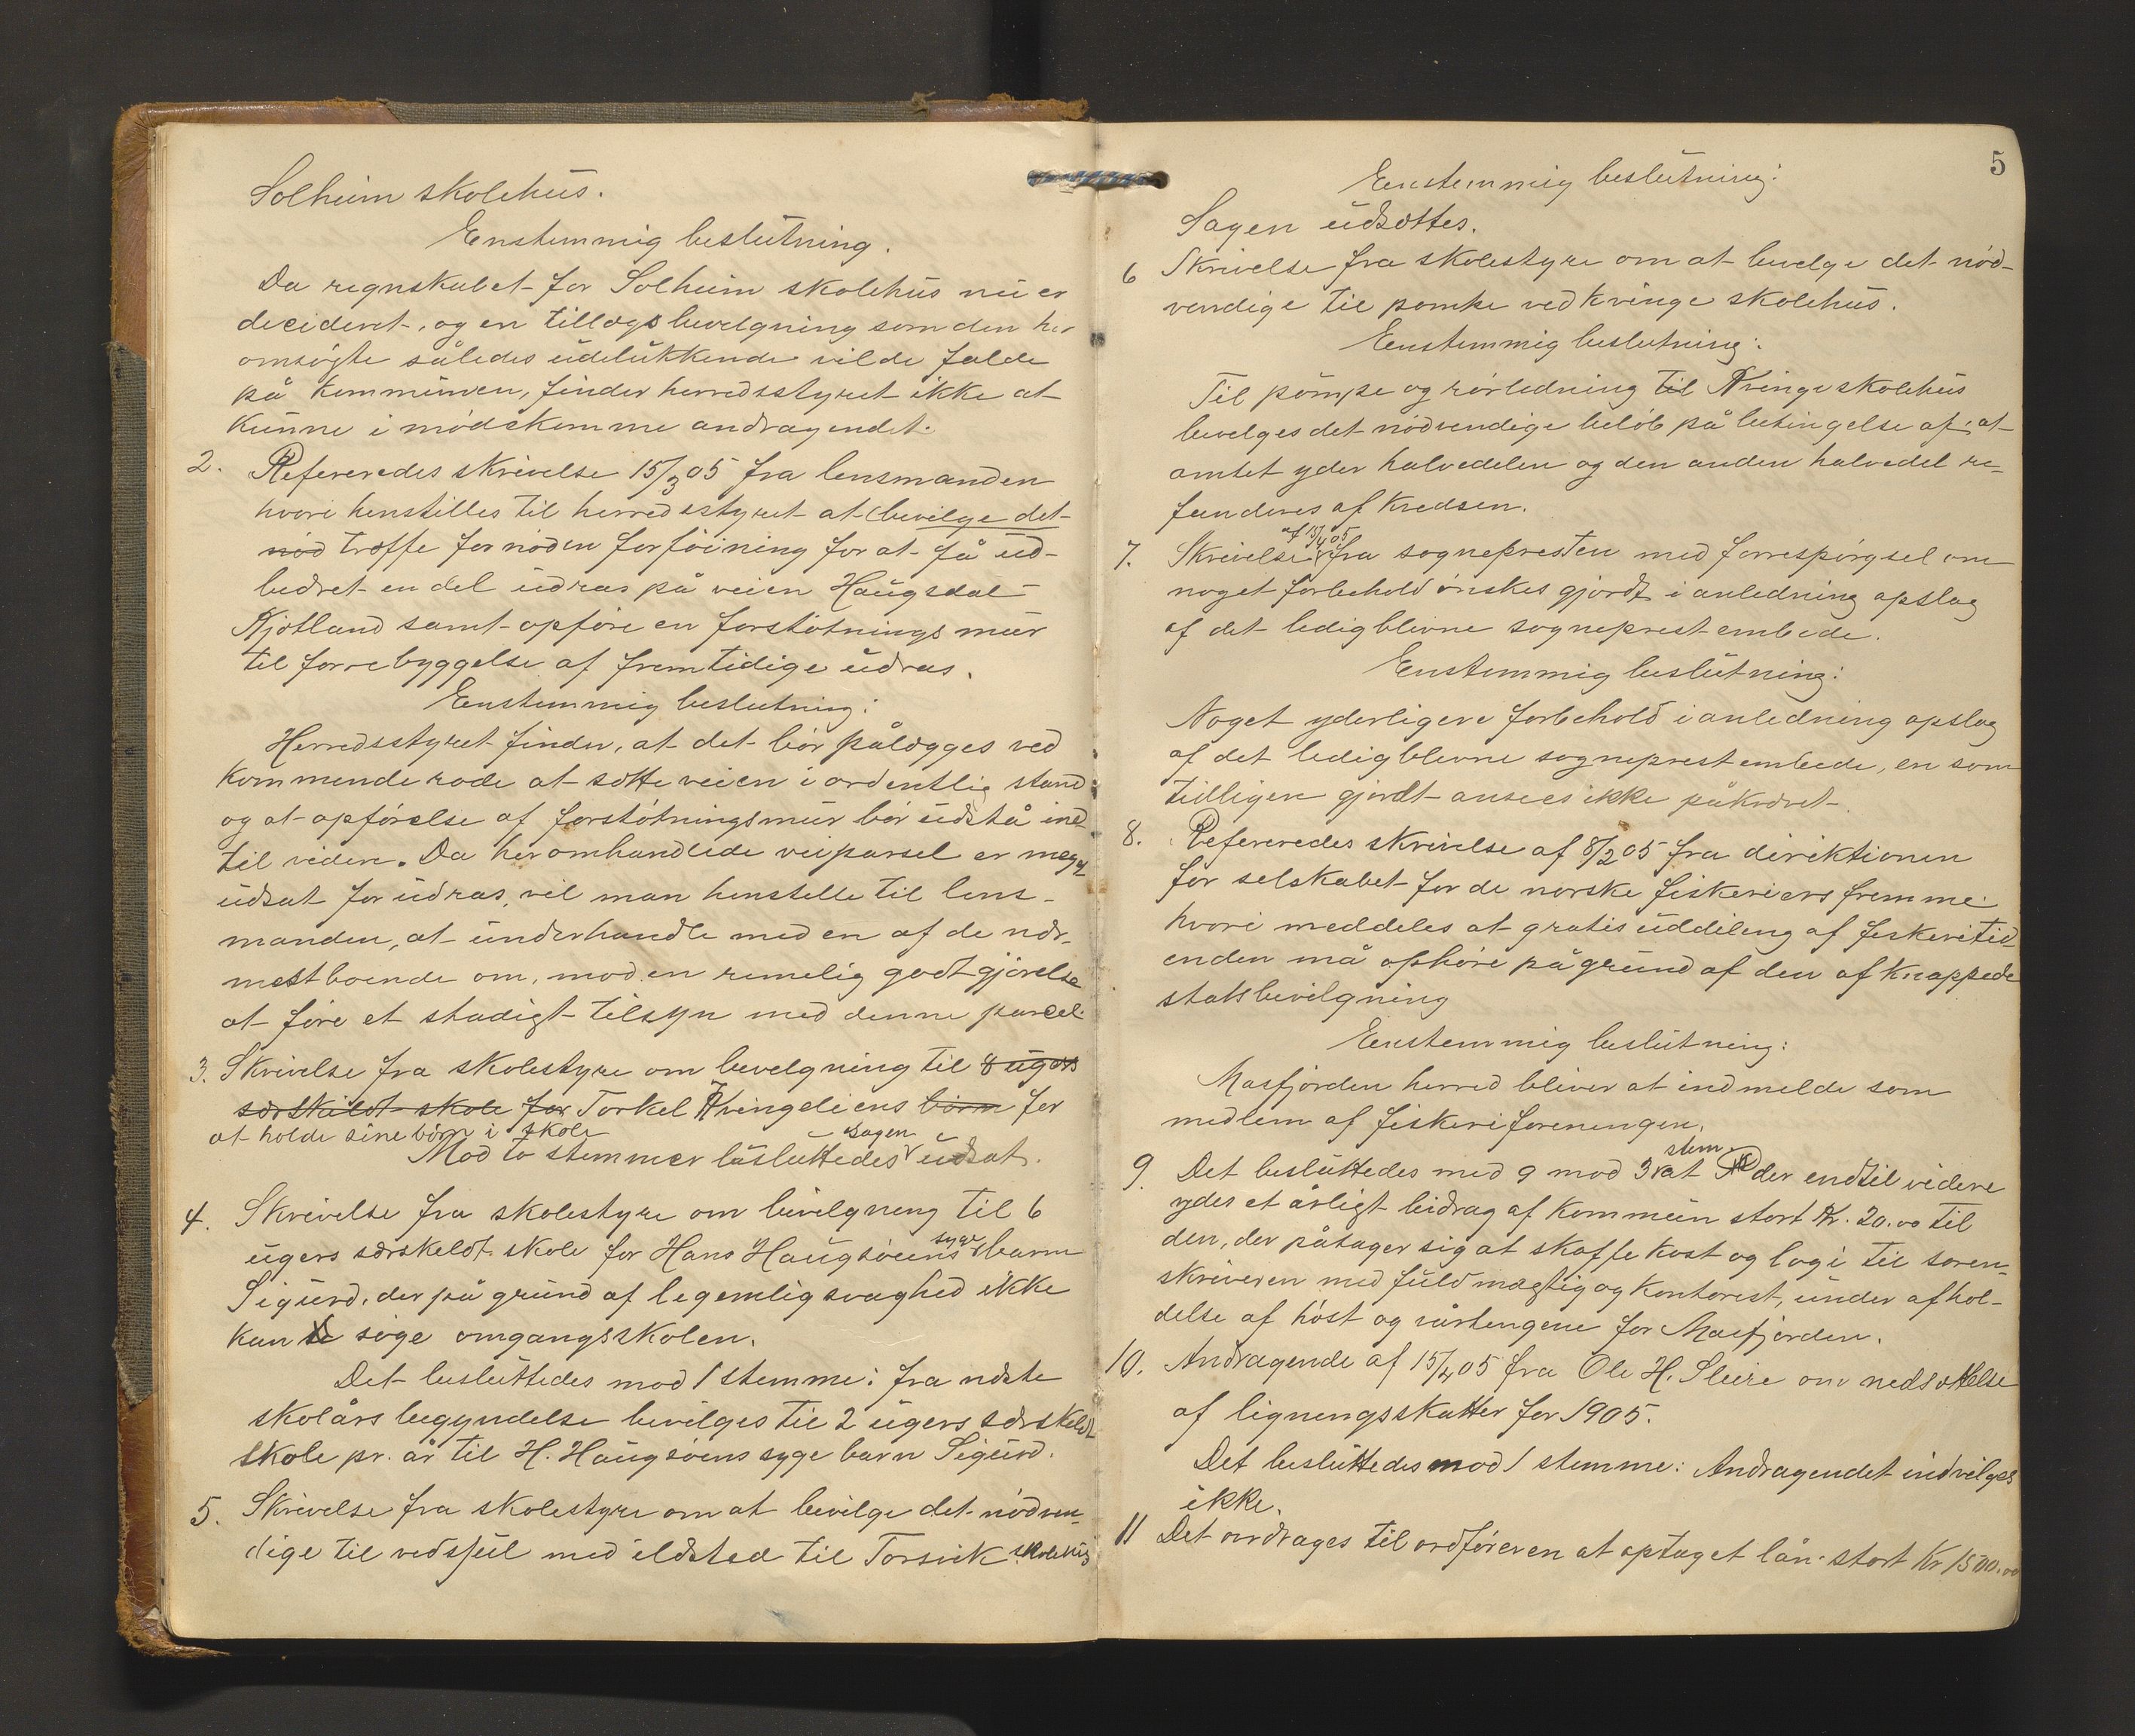 Solheim skolehus.
Enstemmig beslutning.
Da regnskabet for Solheim skolehus nu er
decideret, og en tillægsbevelgning som den her
omsøgte således udelukkende vilde falde
på kommunen, finder herredsstyret ikke at
kunne imødekomme andragendet.
2. Refereredes skrivelse 15/3 05 fra lensmanden
hvori henstilles til herredsstyret at bevilge det
nød træffe fornøden forføining for at få ud-
bedret en del udras på veien Haugsdal-
Kjøtland samt opføre en forstøtningsmur
til forrebyggelse af fremtidige udras.
Enstemmig beslutning:
Herredsstyret finder, at det bør pålægges ved
kommende rode at sætte veien i ordentlig stand
og at opførelse af forstøtningsmur bør udstå ind-
til viden. Da her omhandlede veiparsel er meget
udsat for udras, vil man henstelle til lens-
manden, at underhandle med en af de nær-
mest boende om, mod en remelig godtgjørelse
at føre et stadigt tilsyn med denne parcel.
3. Skrivelse fra skolestyre om bevelgning til 8 ugers
særskildt skole for Torkel Kvingeliens børn for
at holde sine børn i skole
Mod to stemmer besluttedes sagen udsat.
4. Skrivelse fra skolestyre om bevilgning til 6
ugers særskeldt skole for Hans Haugsøens syge barn
Sigurd, der på grund af legemlig svaghed ikke
kan søge omgangsskolen.
Det besluttedes mod 1 stemme: fra næste
skolårs begyndelse bevilges til 2 ugers særskeldt
skole pr. år til H. Haugsøens syge barn Sigurd.
5. Skrivelse fra skolestyre om at bevilge det nødven-
dige til vedskul med ildsted til Torsvik skolehus
5
Enstemmig beslutning:
Sagen udsættes.
6 Skrivelse fra skolestyre om at bevelge det nød-
vendige til pompe ved Kvinge skolehus.
Enstemmig beslutning:
Til pompe og rørledning til Kvinge skolehus
bevelges det nødvendige beløb på betingelse af, at
amtet yder halvedelen og den anden halvedel re-
funderes af kredsen.
7. Skrivelse af 15/4 05 fra sognepresten med forrespørgsel om
noget forbehold ønskes gjordt i anledning opslag
af det ledigblevne sogneprestembede.
Enstemmig beslutning:
Noget yderligere forbehold i anledning opslag
af det ledigblevne sogneprestembede, en som
tidligere gjordt ansees ikke påkrævet.
8. Refereredes skrivelse af 8/2 05 fra direktionen
for selskabet for de norske fiskeriers fremme
hvori meddeles at gratis uddeling af feskeritid-
enden må ophøre på grund af den afknappede
statsbevilgning
Enstemmig beslutning:
Masfjorden herred bliver at indmelde som
medlem af fiskeriforeningen.
9. Det besluttedes med 9 mod 3 stem at der endtil videre
ydes et årligt bidrag af kommun stort Kr. 20.00 til
den, der påtager sig at skaffe kost og logi til soren-
skriveren med fuldmægtig og kontorist, under afhol-
delse af høst og vårtengene for Masfjorden.
10. Andragende af 15/4 05 fra Ole H. Sleire om nedsættelse
af ligningsskatter for 1905.
Det besluttedes mod 1 stemme: Andragendet indvilges
ikke.
11 Det overdrages til ordføreren at optaget lån stort Kr 1500.00